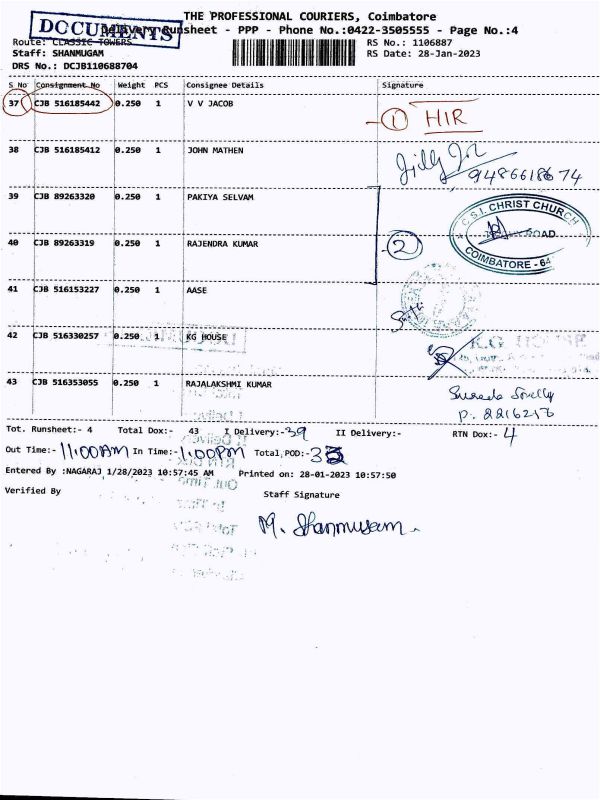 THE PROFESSIONAL COURIERS, Coimbatore
DOCUMENTS
Delivery Runsheet - PPP - Phone No.:0422-3505555 - Page No.:4
Route: CLASSIC TOWERS RS No.: 1106887
Staff: SHANMUGAM RS Date: 28-Jan-2023
DRS No.: DCJB110688704
S No Consignment No Weight PCS Consignee Details Signature
37 CJB 516185442 0.250 1 V V JACOB
1 HIR
38 CJB 516185412 0.250 1 JOHN MATHEN
9486618674
39 CJB 89263320 0.250 1 PAKIYA SELVAM
C.S.I. CHRIST CHURCH
ROAD
COIMBATORE - 64
40 CJB 89263319 0.250 1 RAJENDRA KUMAR
2
41 CJB 516153227 0.250 1 AASE
42 CJB 516330257 0.250 1 KG HOUSE
43 CJB 516353055 0.250 1 RAJALAKSHMI KUMAR
Tot. Runsheet:- 4 Total Dox:- 43 I Delivery:- 39 II Delivery:- RTN Dox:- 4
Out Time:- 11:00AM In Time:- 1:00PM Total POD:-
Entered By :NAGARAJ 1/28/2023 10:57:45 AM Printed on: 28-01-2023 10:57:50
Verified By Staff Signature
M. Shanmugam.